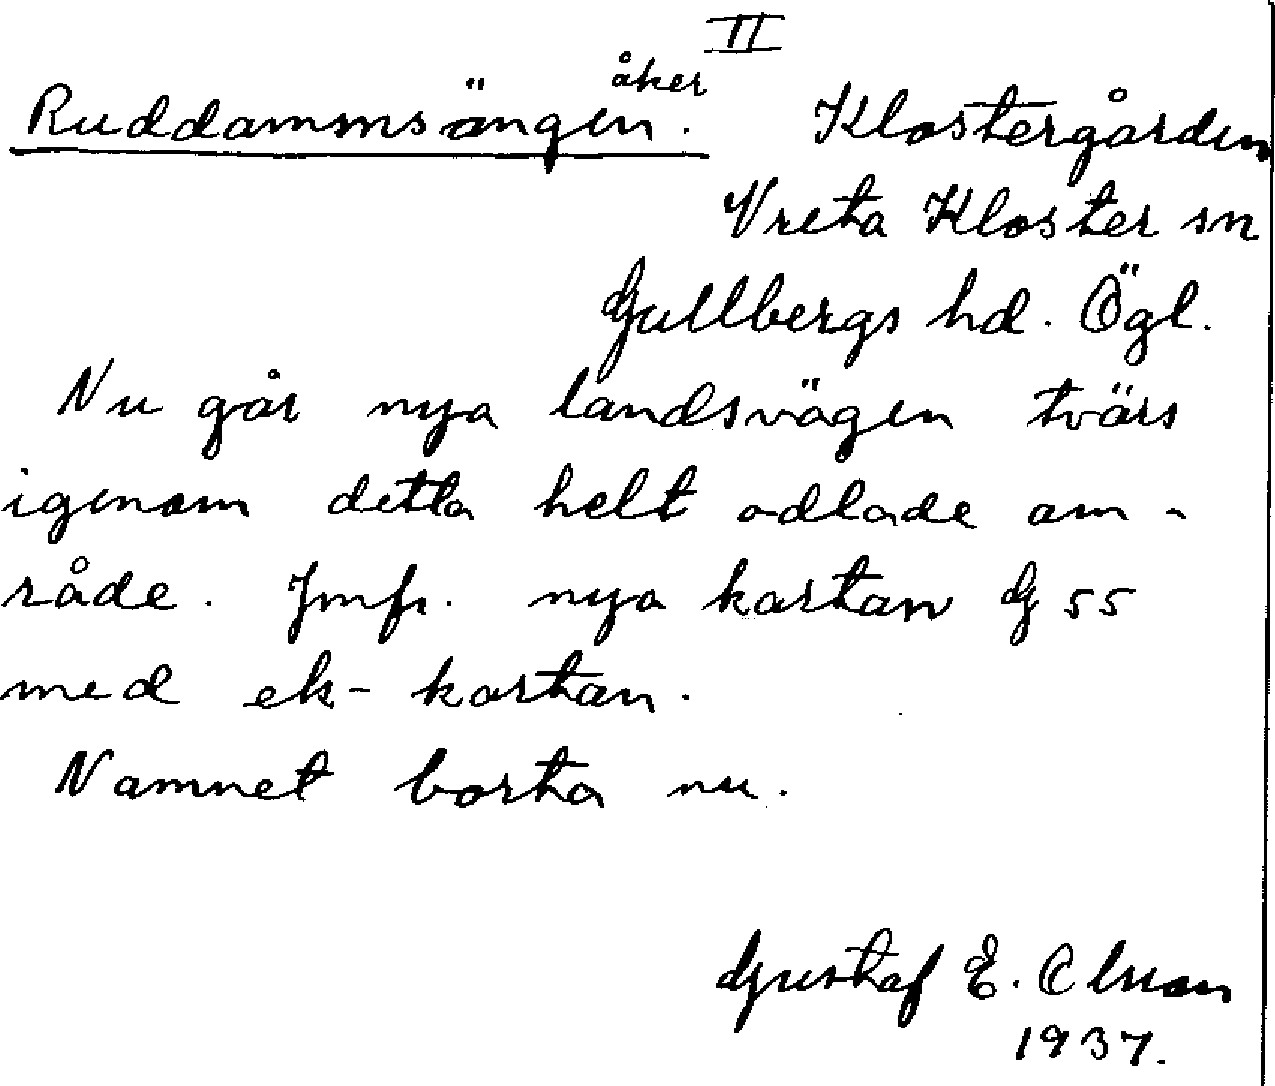 II
åker
Ruddammsängen. Klostergården
Vreta Kloster sn
Gullbergs hd. Ögl.
Nu går nya landsvägen tvärs
igenom detta helt odlade om-
råde. Jmfr. nya kartan G 55
med ek-kartan.
Namnet borta nu.
Gustaf E. Olsson
1937.